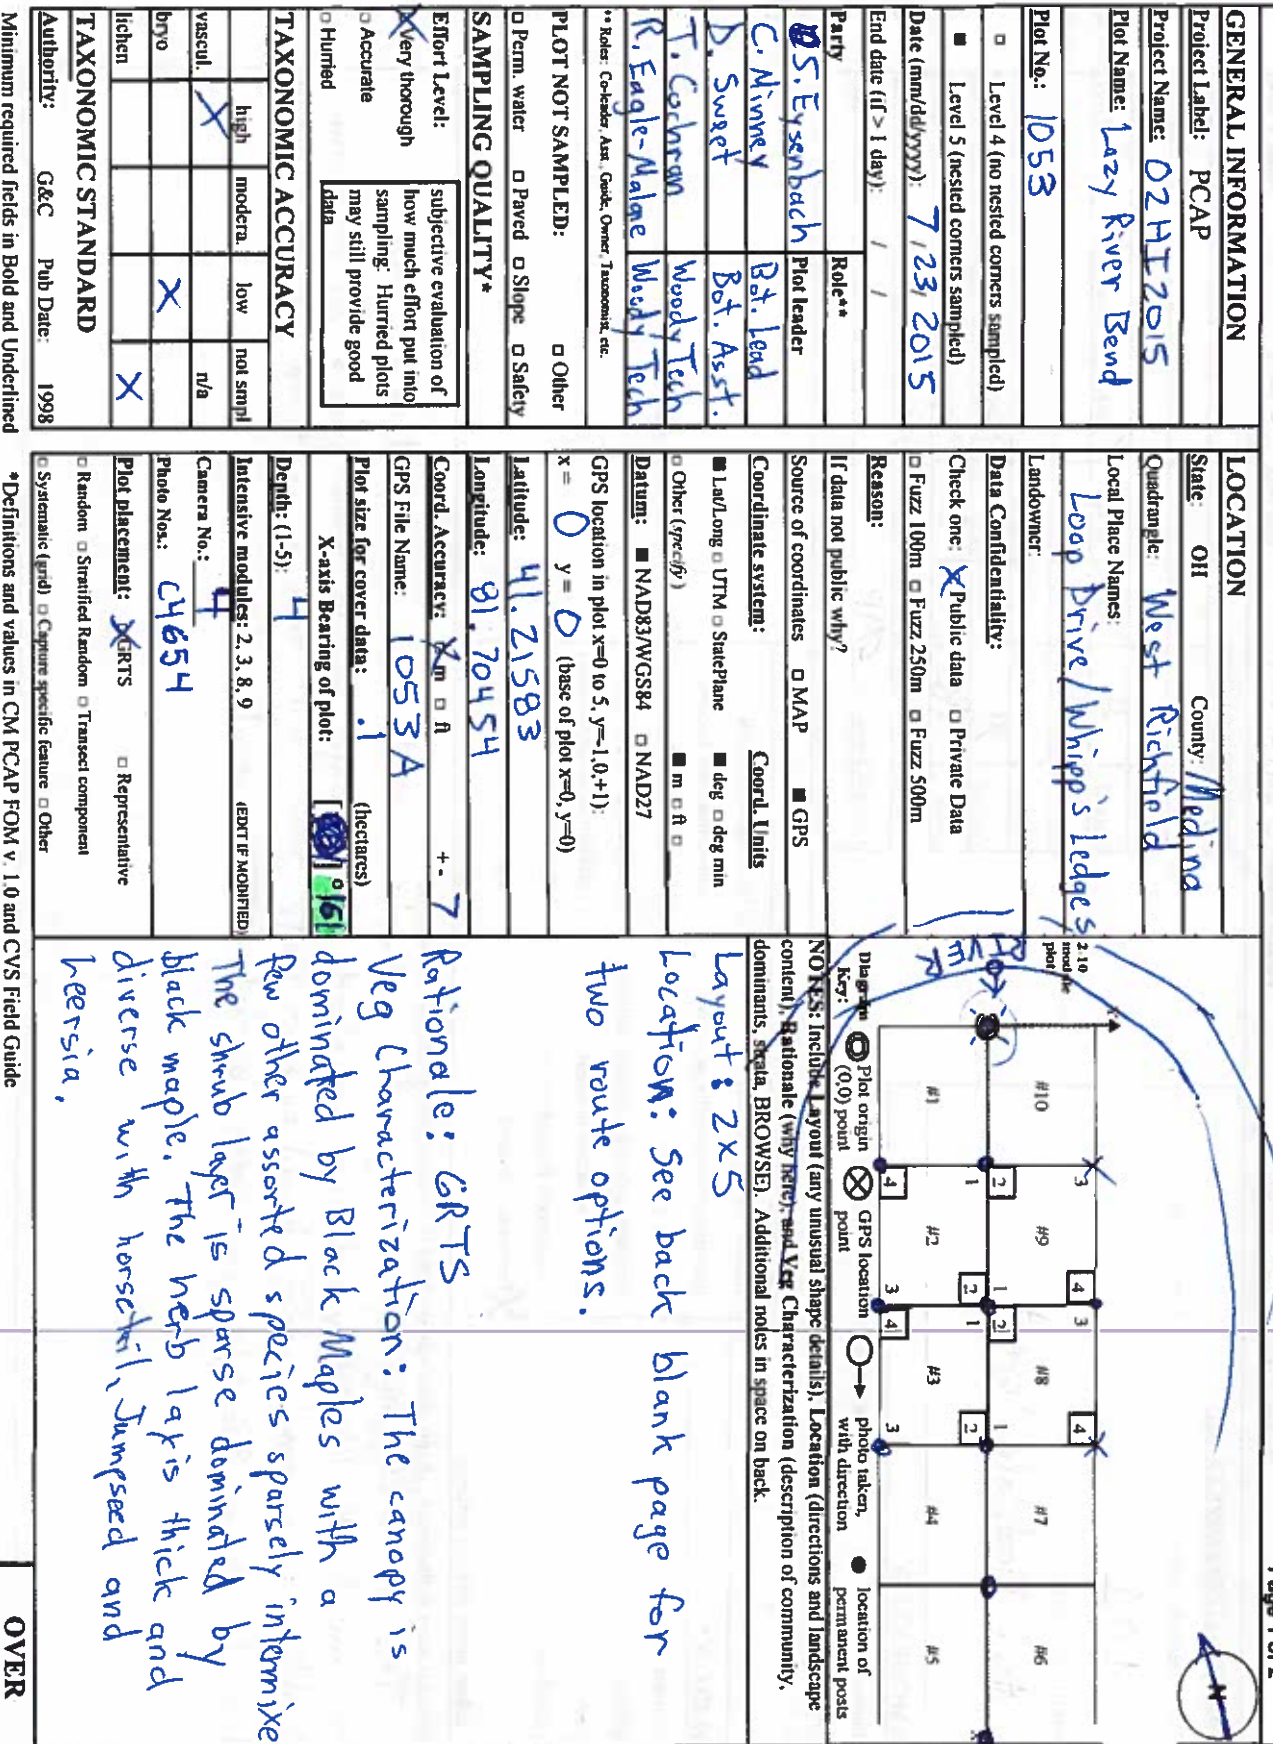 Page 1 of 2
GENERAL INFORMATION
Project Label: PCAP
Project Name: 02HI2015
Plot Name: Lazy River Bend
Plot No.: 1053
□ Level 4 (no nested corners sampled)
■ Level 5 (nested corners sampled)
Date (mm/dd/yyyy): 7/23/2015
End date (if > 1 day): / /
Party Role**
S. Eysenbach Plot leader
C. Minney Bot. Lead
D. Sweet Bot. Asst.
T. Cochran Woody Tech
R. Eagle-Malone Woody Tech
** Roles: Co-leader, Asst., Guide, Owner, Taxonomist, etc.
PLOT NOT SAMPLED: □ Other
□ Perm. water □ Paved □ Slope □ Safety
SAMPLING QUALITY*
Effort Level:
X Very thorough
□ Accurate
□ Hurried
subjective evaluation of
how much effort put into
sampling: Hurried plots
may still provide good
data
TAXONOMIC ACCURACY
high modera. low not smpl
vascul. X n/a
bryo X
lichen X
TAXONOMIC STANDARD
Authority: G&C Pub Date: 1998
Minimum required fields in Bold and Underlined
LOCATION
State: OH County: Medina
Quadrangle: West Richfield
Local Place Names:
Loop Drive/Whipp's Ledges
Landowner:
Data Confidentiality:
Check one: X Public data □ Private Data
□ Fuzz 100m □ Fuzz 250m □ Fuzz 500m
Reason:
If data not public why?
Source of coordinates □ MAP ■ GPS
Coordinate system: Coord. Units
■ Lat/Long □ UTM □ StatePlane ■ deg □ deg min
□ Other (specify) ■ m □ ft □
Datum: ■ NAD83/WGS84 □ NAD27
GPS location in plot x=0 to 5, y=-1,0,+1):
x= 0 y= 0 (base of plot x=0, y=0)
Latitude: 41.21583
Longitude: 81.70454
Coord. Accuracy: X m □ ft +- 7
GPS File Name: 1053A
Plot size for cover data: .1 (hectares)
X-axis Bearing of plot: [ ]° 161
Depth: (1-5): 4
Intensive modules: 2, 3, 8, 9 (EDIT IF MODIFIED)
Camera No.: 4
Photo Nos.: C4654
Plot placement: X GRTS □ Representative
□ Random □ Stratified Random □ Transect component
□ Systematic (grid) □ Capture specific feature □ Other
*Definitions and values in CM PCAP FOM v. 1.0 and CVS Field Guide
N
2.10
module
plot
RIVER
#10 #9 #8 #7 #6
#1 #2 #3 #4 #5
3 4 3 4
2 1 2 1
1 2 1 2
4 3 4 3
Diagram Key: Plot origin (0,0) point GPS location point photo taken, with direction location of permanent posts
NOTES: Include Layout (any unusual shape details), Location (directions and landscape
content), Rationale (why here), and Veg Characterization (description of community,
dominants, strata, BROWSE). Additional notes in space on back.
Layout: 2x5
Location: See back blank page for
two route options.
Rationale: GRTS
Veg Characterization: The canopy is
dominated by Black Maples with a
few other assorted species sparsely intermixe
The shrub layer is sparse dominated by
black maple. The herb lay is thick and
diverse with horsetail, Jumpseed and
Leersia.
OVER